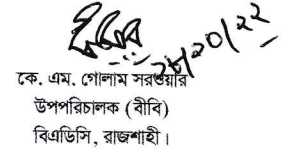 কে. এম. গোলাম সরওয়ার
উপপরিচালক (বীবি)
বিএডিসি, রাজশাহী।